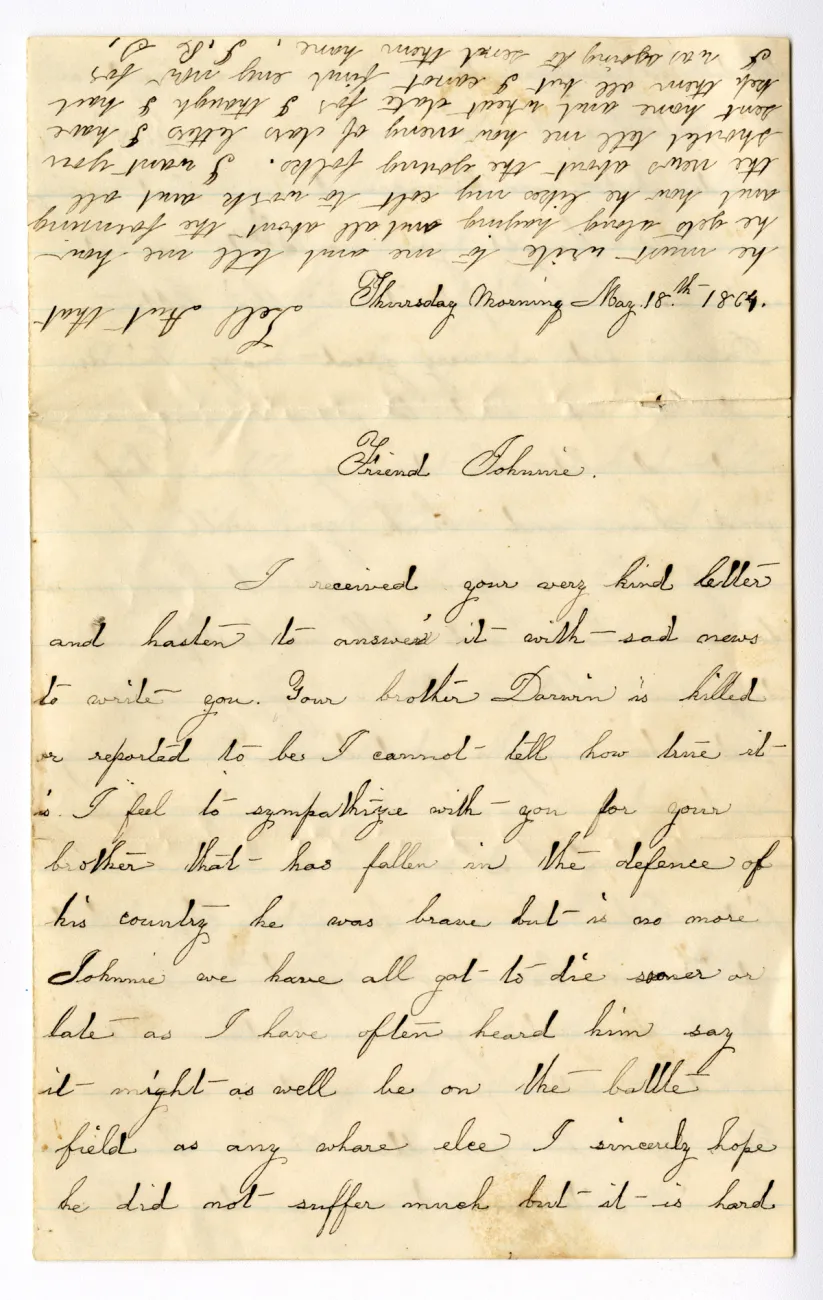 Thursday Morning May. 18.th 1864.
Friend Johnnie.
I received your very kind letter
and hasten to answer it with sad news
to write you. Your brother Darwin is killed
or reported to be I cannot tell how true it
is. I feel to sympathize with you for your
brother that has fallen in the defence of
his country he was brave but is no more
Johnnie we have all got to die sooner or
late as I have often heard him say
it might as well be on the battle
field as any whare else I sincerely hope
he did not suffer much but it is hard
Tell that
he must write to me and tell me how
he gets along haying and all about the farming
and how he likes my colt to work and all
the news about the young folks. I want you
should tell me how meny of letters I have
sent home and what date for I though I had
kep them all but I canot find eny now for
I was agoing to send them